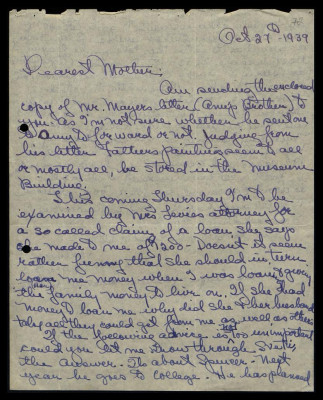 Oct 27th 1939
Dearest Mother:
Am sending the enclosed
copy of Mr Mayers letter (Amys Brother) to
you. as I'm not sure whether he sent one
to Amy to forward or not. Judging from
his letter Fathers paintings seem to all
or mostly all, be stored in the museum
Building.
This coming Thursday I'm to be
examined by Mrs attorney for
a so called claim of a loan, she says
she made to me of $1200 - Doesn't it seem
rather funny that she should in turn
loan me money when I was loaning & giving
the family money to live on. If she had
money to loan me why did she & her husband
all they could get from me as well as others
If the following is not important
could you let me know through
the answer. Its about Spencer - Next
year he goes to college. He has planned